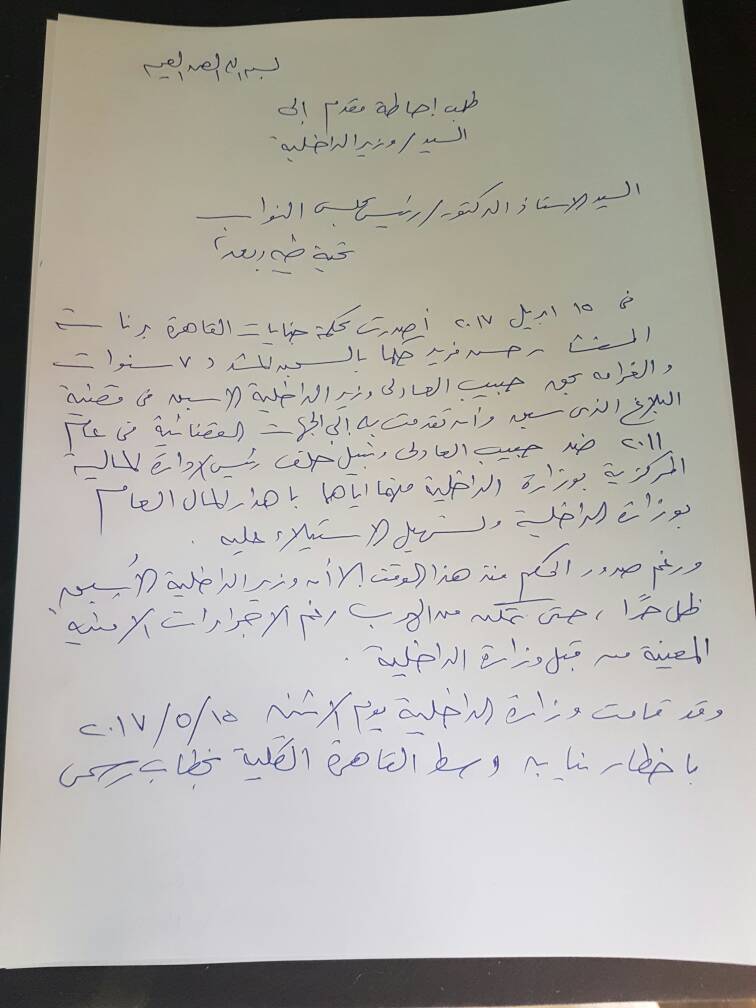 بسم الله الرحمن الرحيم
طلب إحاطة مقدم إلى
السيد/ وزير الداخلية
السيد الاستاذ الدكتور/ رئيس مجلس النواب
تحية طيبة وبعد،
فى ١٥ ابريل ٢٠١٧ أصدرت محكمة جنايات القاهرة برئاسة
المستشار حسن فريد حكما بالسجن المشدد ٧ سنوات
والغرامه بحق حبيب العادلى وزير الداخلية الاسبق فى قضية
البلاغ الذى سبق وأن تقدمت به إلى الجهات القضائية فى عام
٢٠١١ ضد حبيب العادلى ونبيل خلف رئيس الادارة المالية
المركزية بوزارة الداخلية متهما اياهما باهدار المال العام
بوزارة الداخلية وتسهيل الاستيلاء عليه .
ورغم صدور الحكم منذ هذا الوقت إلا أن وزير الداخلية الأسبق
ظل حرًا ، حتى تمكن من الهرب رغم الاجراءات الامنية
المعينة من قبل وزارة الداخلية .
وقد قامت وزارة الداخلية يوم الاثنين ٢٠١٧/٥/١٥
باخطار نيابه وسط القاهرة الكلية بخطاب رسمى